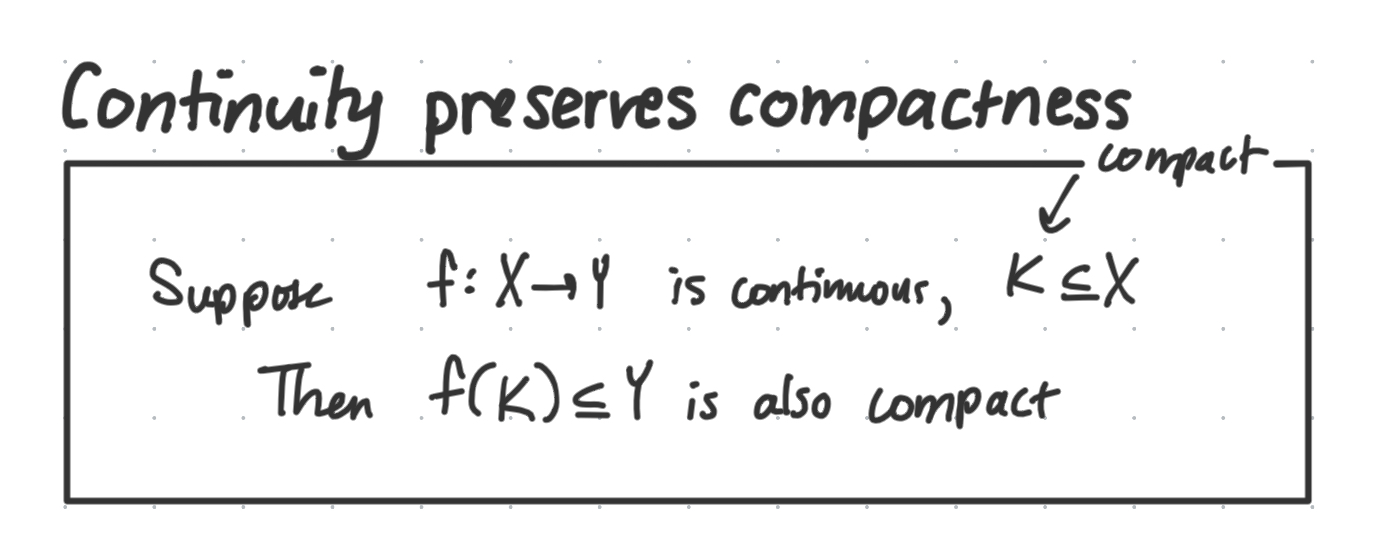 Continuity preserves compactness
compact
Suppose f: X→Y is continuous, K⊆X
Then f(K)⊆Y is also compact